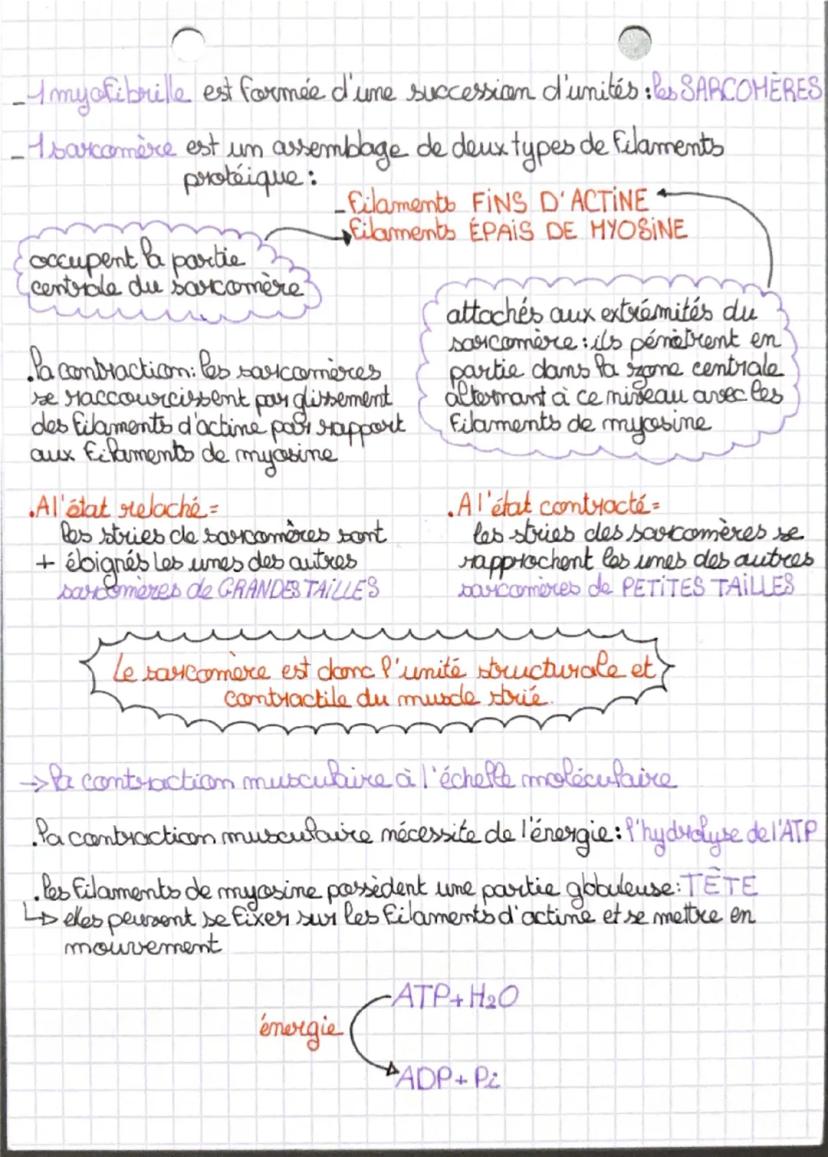 _ 1 myofibrille est formée d'une succession d'unités : les SARCOMÈRES
_ 1 sarcomère est un assemblage de deux types de filaments
protéique :
_ filaments FINS D'ACTINE
_ filaments ÉPAIS DE MYOSINE
occupent la partie
centrale du sarcomère
attachés aux extrémités du
sarcomère : ils pénètrent en
partie dans la zone centrale
alternant à ce niveau avec les
filaments de myosine
. la contraction : les sarcomères
se raccourcissent par glissement
des filaments d'actine par rapport
aux filaments de myosine
. A l'état relaché =
les stries de sarcomères sont
+ éloignés les unes des autres
sarcomères de GRANDES TAILLES
. A l'état contracté =
les stries des sarcomères se
rapprochent les unes des autres
sarcomères de PETITES TAILLES
Le sarcomère est donc l'unité structurale et
contractile du muscle strié.
→ la contraction musculaire à l'échelle moléculaire
. la contraction musculaire nécessite de l'énergie : l'hydrolyse de l'ATP
. les filaments de myosine possèdent une partie globuleuse : TÊTE
↳ elles peuvent se fixer sur les filaments d'actine et se mettre en
mouvement
ATP + H₂O
énergie
ADP + Pi